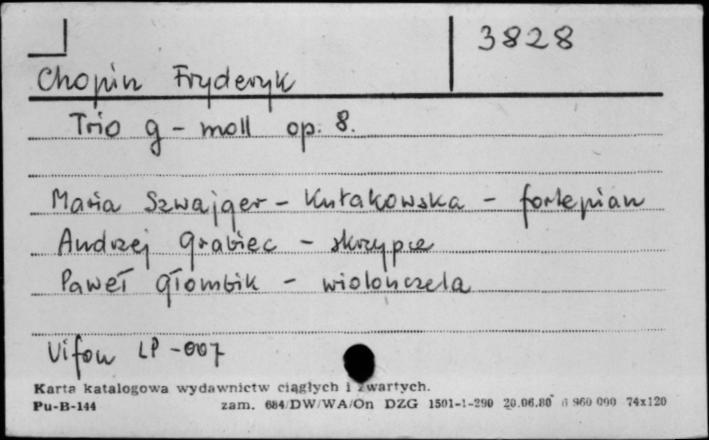 3828
Chopin Fryderyk
Trio g-moll op. 8.
Maria Szwajger-Kułakowska - fortepian
Andrzej Grabiec - skrzypce
Paweł Głombik - wiolonczela
Vifon LP-007
Karta katalogowa wydawnictw ciągłych i zwartych.
Pu-B-144 zam. 684/DW/WA/On DZG 1501-1-290 20.06.80 6 960 000 74x120